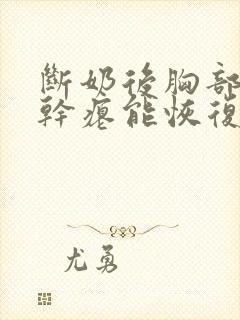 斷奶後胸部
幹癟能恢復
尤勇